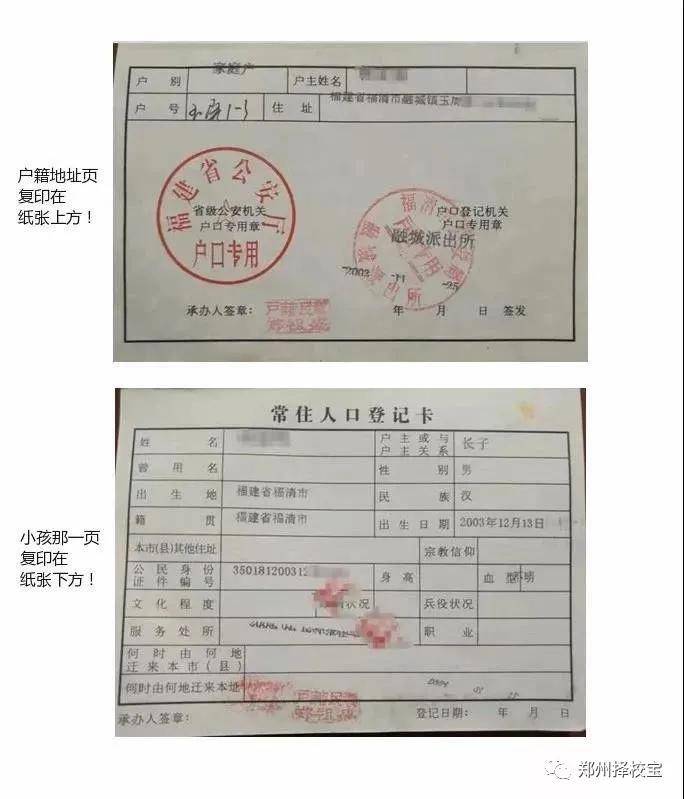 户籍地址页
复印在
纸张上方！
户 别 家庭户 户主姓名
户 号 住 址 福建省福清市融城镇玉
福建省公安厅
省级公安机关
户口专用章
户口专用
户口登记机关
户口专用章
融城派出所
2003
承办人签章： 年 月 日 签发
小孩那一页
复印在
纸张下方！
常住人口登记卡
姓 名 户主或与户主关系 长子
曾用名 性 别 男
出生地 福建省福清市 民 族 汉
籍 贯 福建省福清市 出生日期 2003年12月13日
本市(县)其他住址 宗教信仰
公民身份证件编号 35018120031 身 高 血 型
文化程度 状况 兵役状况
服务处所 职 业
何时由何地迁来本市(县)
何时由何地迁来本址
承办人签章： 登记日期： 年 月 日
郑州择校宝